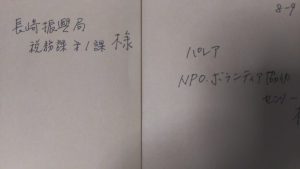 長崎振興局
税務課 第1課 様
8-9
パレア
NPO.ボランティア協働
センター